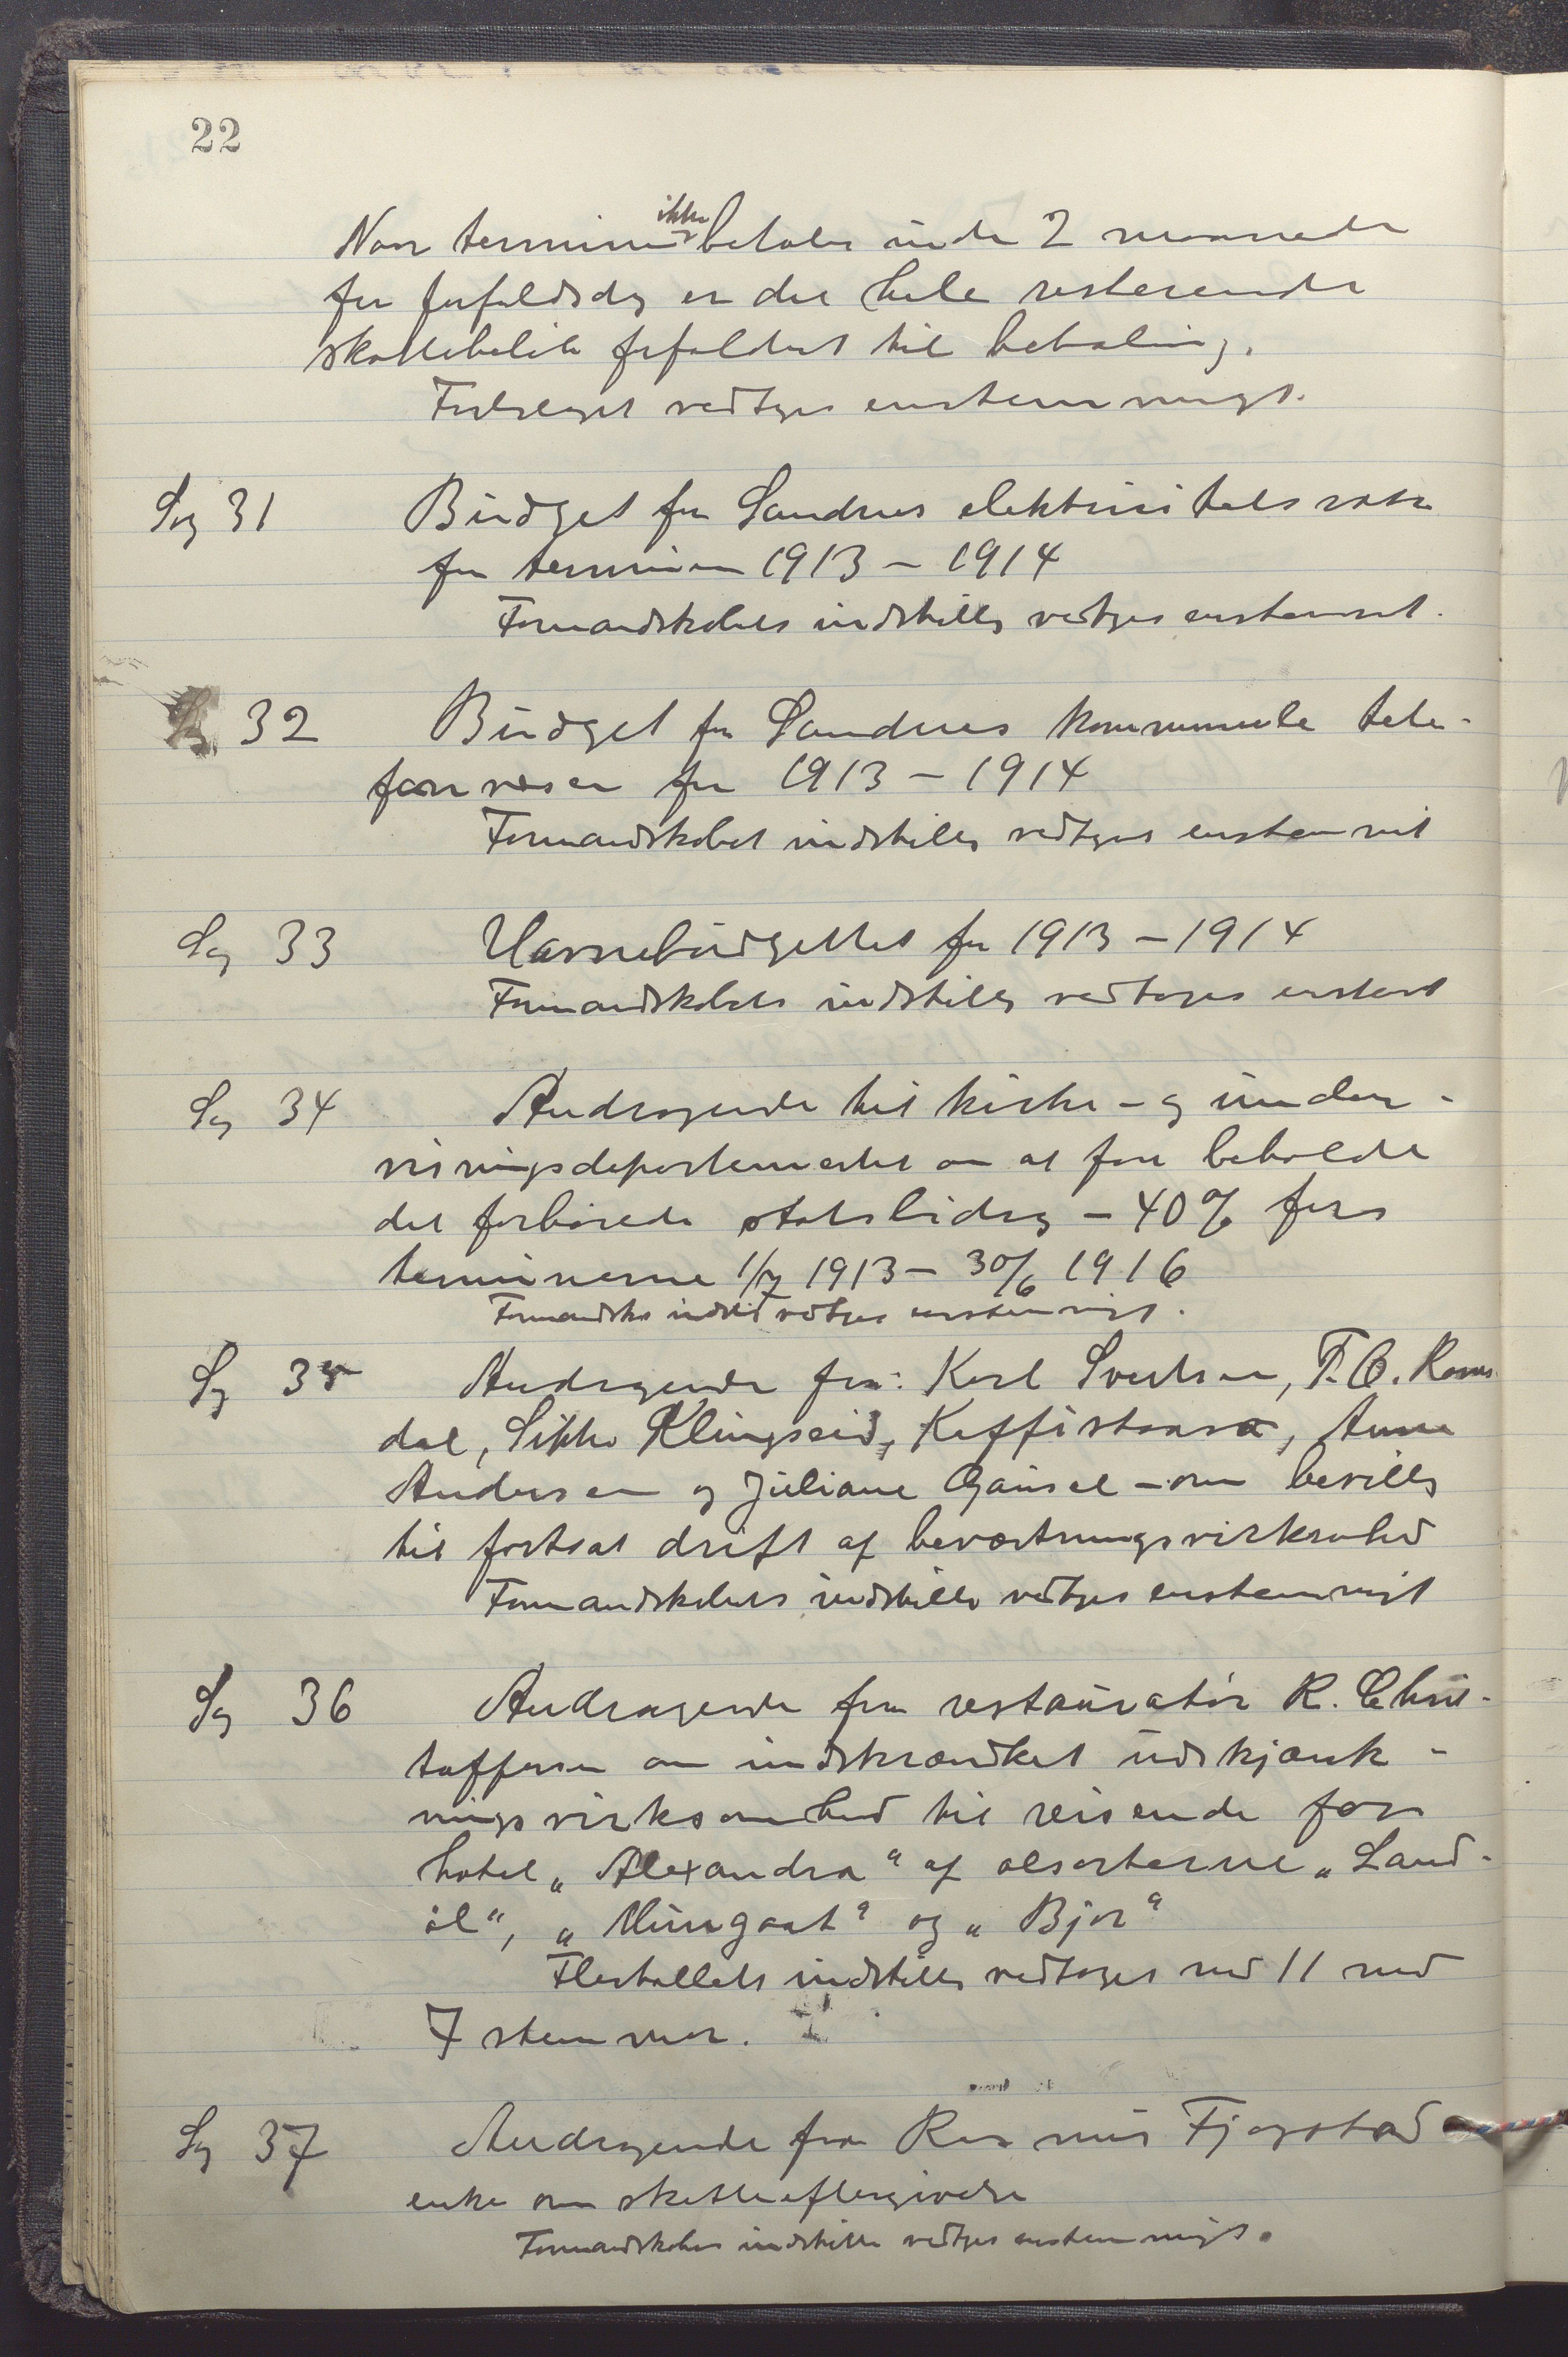 22
Naar terminen ikke betales inden 2 maaneder
fra forfaldsdag er det hele resterende
skattebeløb forfaldent til betaling.
Forslaget vedtages enstemmigt.
Sag 31 Budget for Sandnes elektricitetsværk
for terminen 1913 – 1914
Formandskabets indstilling vedtages enstemmigt.
Sag 32 Budget for Sandnes kommunale tele-
fonvæsen for 1913 – 1914
Formandskabets indstilling vedtages enstemmigt
Sag 33 Havnebudgettet for 1913 – 1914
Formandskabets indstilling vedtages enstemt
Sag 34 Andragende til kirke- og under-
visningsdepartementet om at faa beholde
det forhøiede statsbidrag – 40 % for
terminerne 1/7 1913 – 30/6 1916
Formandsk. indst. vedtages enstemmigt.
Sag 35 Andragende fra: Karl Svertsen, T. O. Rams-
dal, Sikke Klingseid, Kaffistaava, Anna
Andersen og Juliane Gausel – om bevilling
til fortsat drift af beværtningsvirksomhed
Formandskabets indstilling vedtages enstemmigt
Sag 36 Andragende fra restauratør R. Chris-
toffersen om indskrænket udskjænk-
ningsvirksomhed til reisende for
hotel „Alexandra“ af ølsorterne „Land-
øl“, „Mungaat“ og „Bjor“
Flertallets indstilling vedtages med 11 mod
7 stemmer.
Sag 37 Andragende fra Rasmus Fjogstad
enke om skatteeftergivelse
Formandskabets indstilling vedtages enstemmigt.